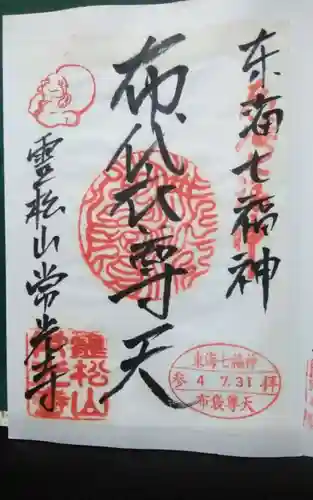 东海七福神
布袋尊天
霊松山常光寺
東海七福神
参 4 7.31 拝
布袋尊天
霊松山